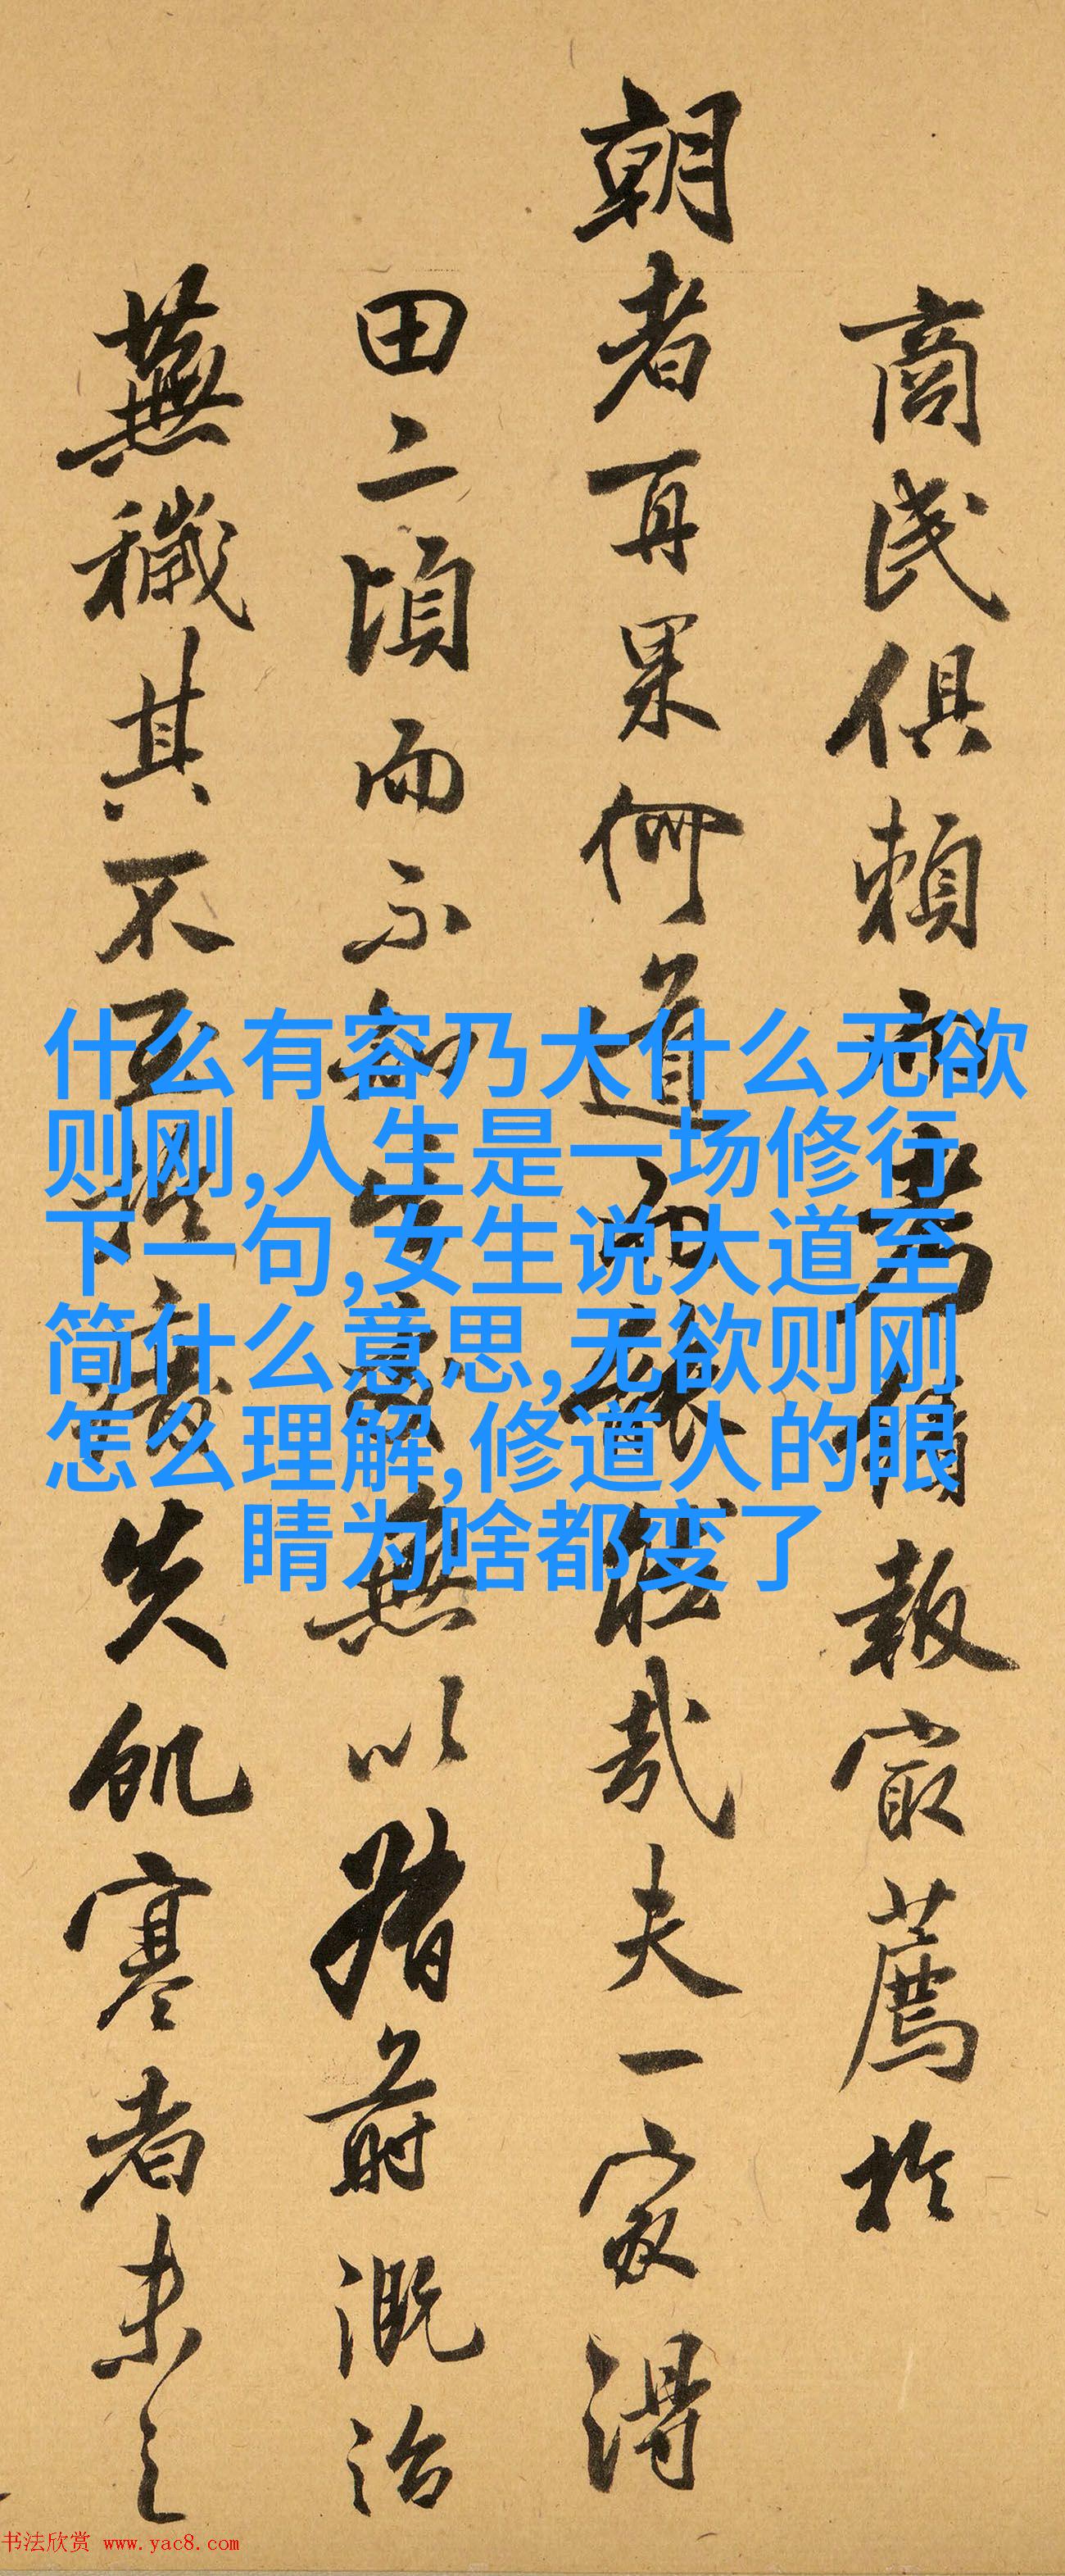 商民俱賴
報最薦於
朝者再果何道
哉夫一家得
田二頃而不
無以猪前溉治
蕪穢其不
失飢寒者未之
什么有容乃大什么无欲
则刚,人生是一场修行
下一句,女生说大道至
简什么意思,无欲则刚
怎么理解,修道人的眼
睛为啥都变了
书法欣赏 www.yac8.com